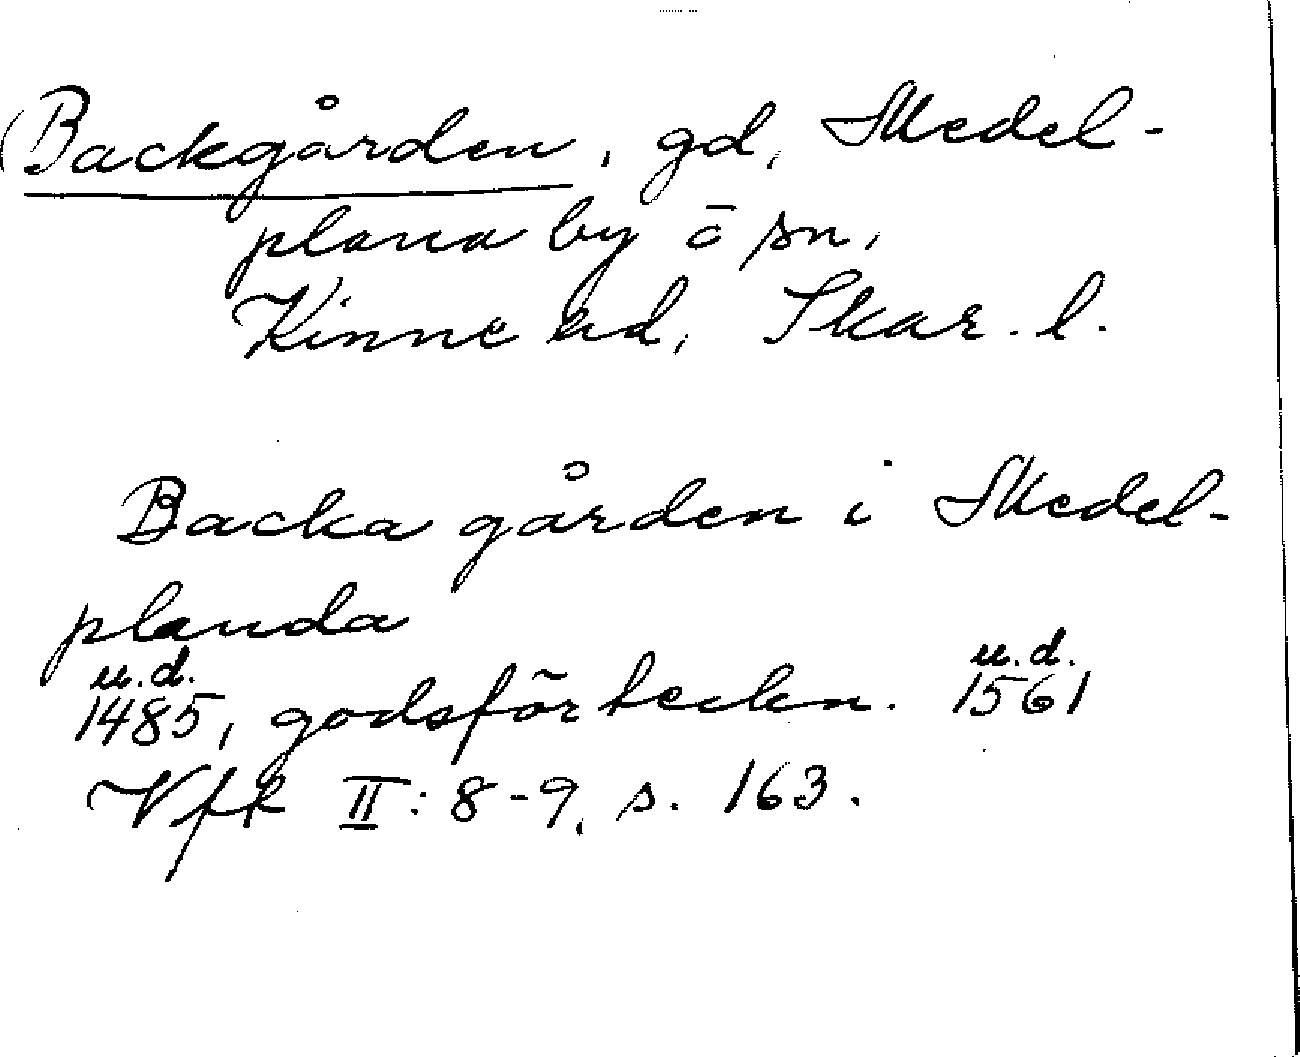 Backgården, gd, Medel-
plana by o sn,
Kinne hd, Skar. l.
Backa gården i Medel-
planda
u.d. u.d.
1485, godsförteckn. 1561
Vfk II: 8-9, s. 163.